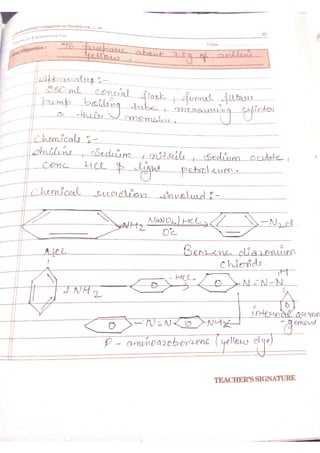 Date
To prepare about 2.5g of aniline
yellow.
Apparatus :-
250 ml conical flask, funnel, filter
pump boiling tube, measuring cylinder
a thermometer.
Chemicals :-
Aniline, Sodium, nitrite, sodium acetate,
conc HCl & light petroleum.
Chemical reaction involved :-
NH2 NaNO2/HCl N2Cl
0°C
Benzene diazonium
chloride
N2Cl
+ NH2 -HCl N=N-N
H
internal
N=N NH2
P-aminoazobenzene (yellow dye)
TEACHER'S SIGNATURE